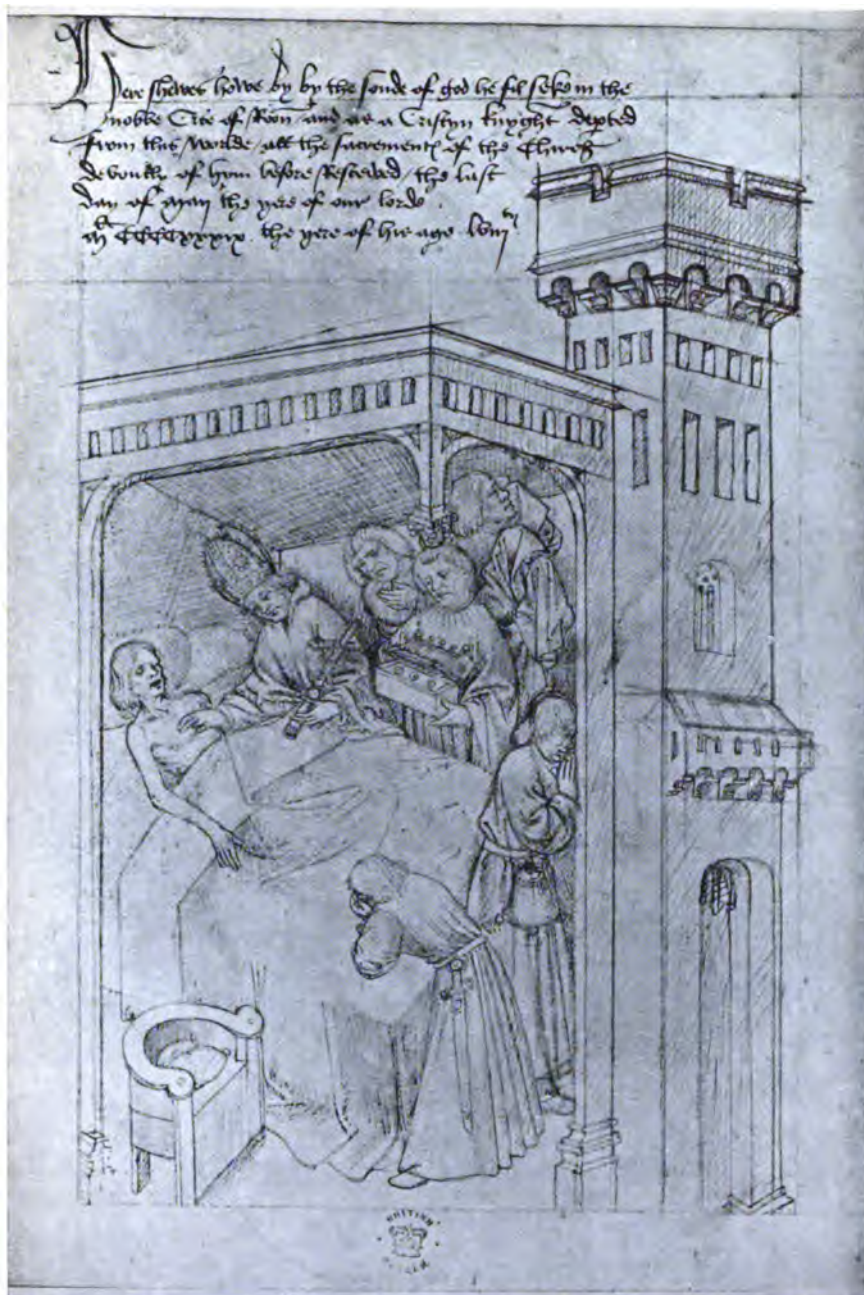 Here shewes howe by by the sonde of god he fil seke in the
nobbe Cite of Roon and as a Cristyn knyght depted
from this worlde all the sacrementȝ of the Chirch
devoutly of hym before Resceved the last
day of maij the yere of our lorde
Mł CCCCxxxix. the yere of his age lviij ti
BRITISH
MUSEUM